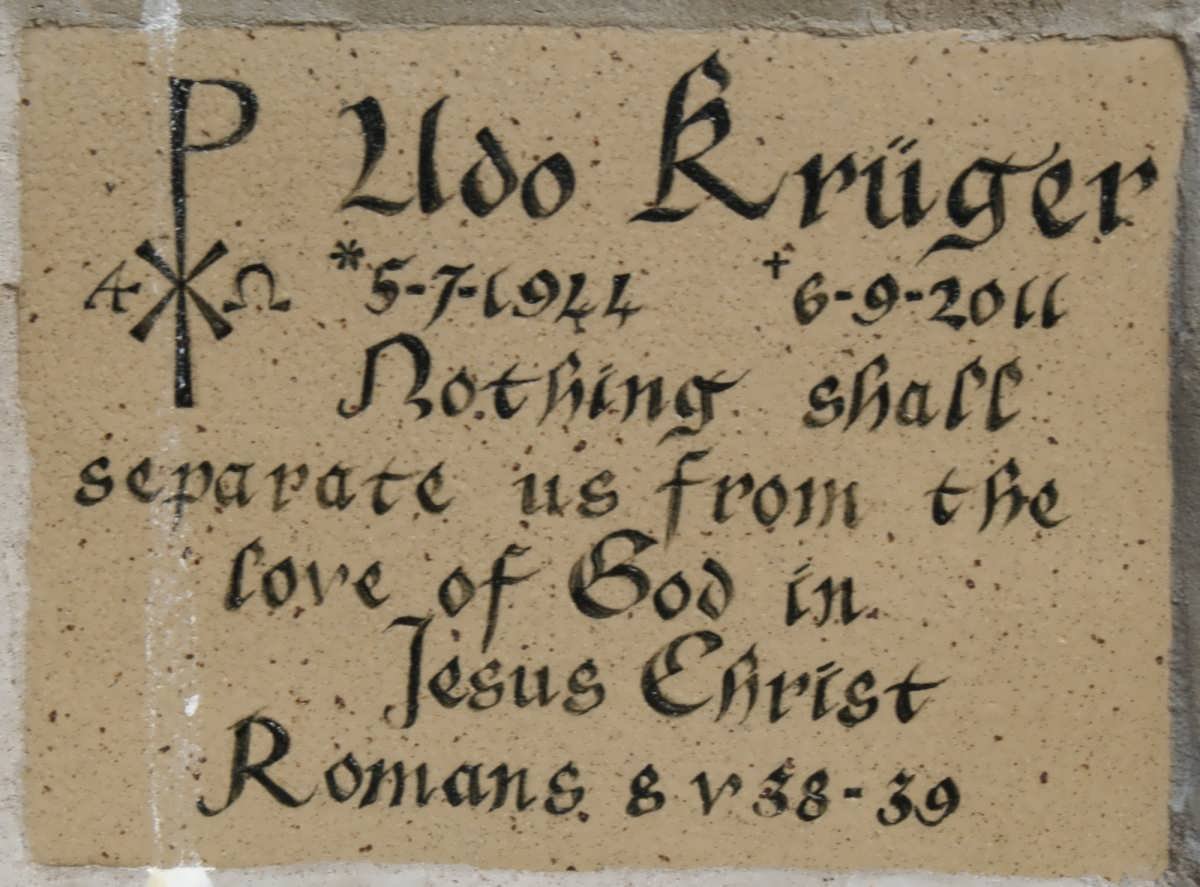 Udo Krüger
Α ☧ Ω *5-7-1944 +6-9-2011
Nothing shall
separate us from the
love of God in
Jesus Christ
Romans 8 v 38-39